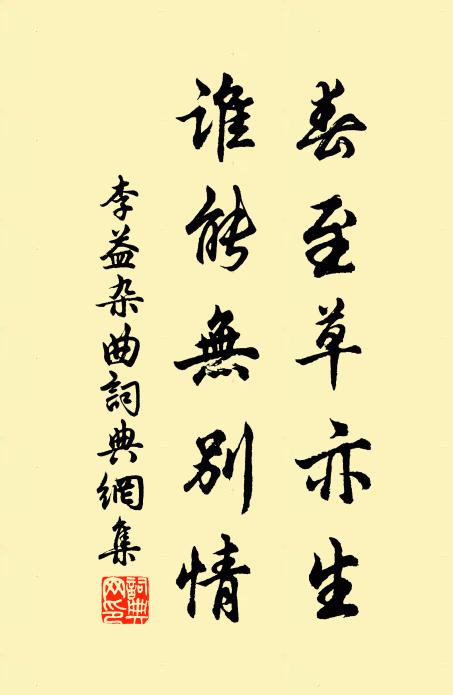 春至草亦生
誰能無別情
李益杂曲詞典網集
詞典网印